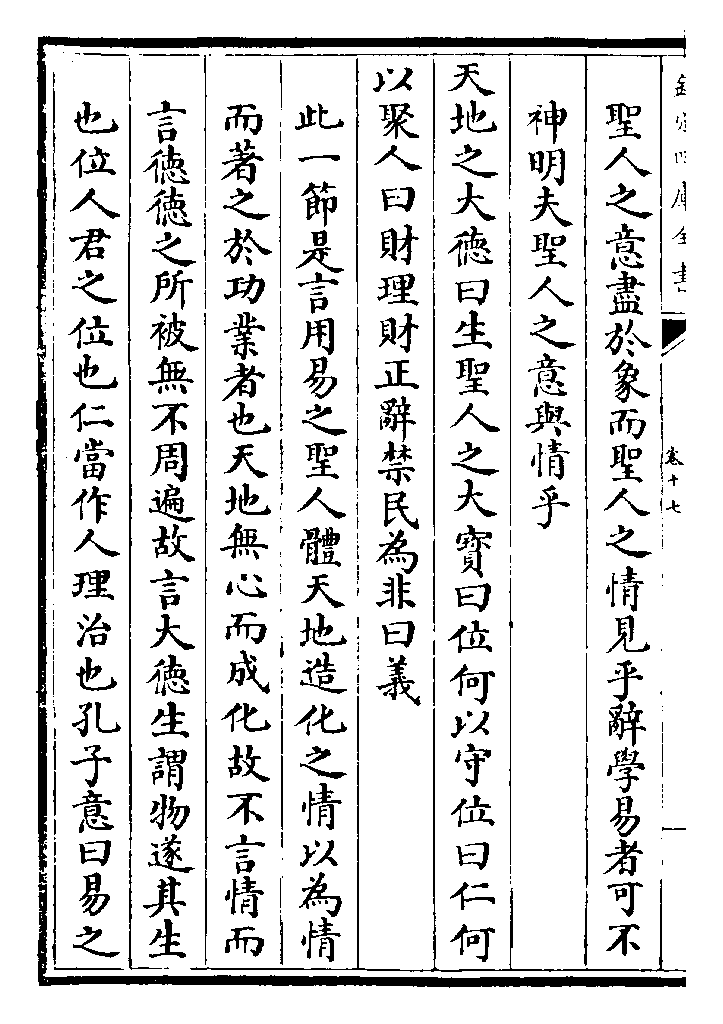 欽定四庫全書
卷十七
聖人之意盡於象而聖人之情見乎辭學易者可不
神明夫聖人之意與情乎
天地之大德曰生聖人之大寳曰位何以守位曰仁何
以聚人曰財理財正辭禁民為非曰義
此一節是言用易之聖人體天地造化之情以為情
而著之於功業者也天地無心而成化故不言情而
言德德之所被無不周遍故言大德生謂物遂其生
也位人君之位也仁當作人理治也孔子意曰易之